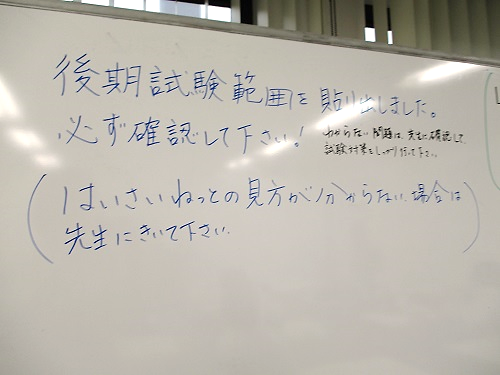 後期試験範囲を貼り出しました。
必ず確認して下さい!
わからない問題は、先生に確認して、
試験対策をしっかり行って下さい。
(はいさいねっとの見方が分からない場合は
先生にきいて下さい。)